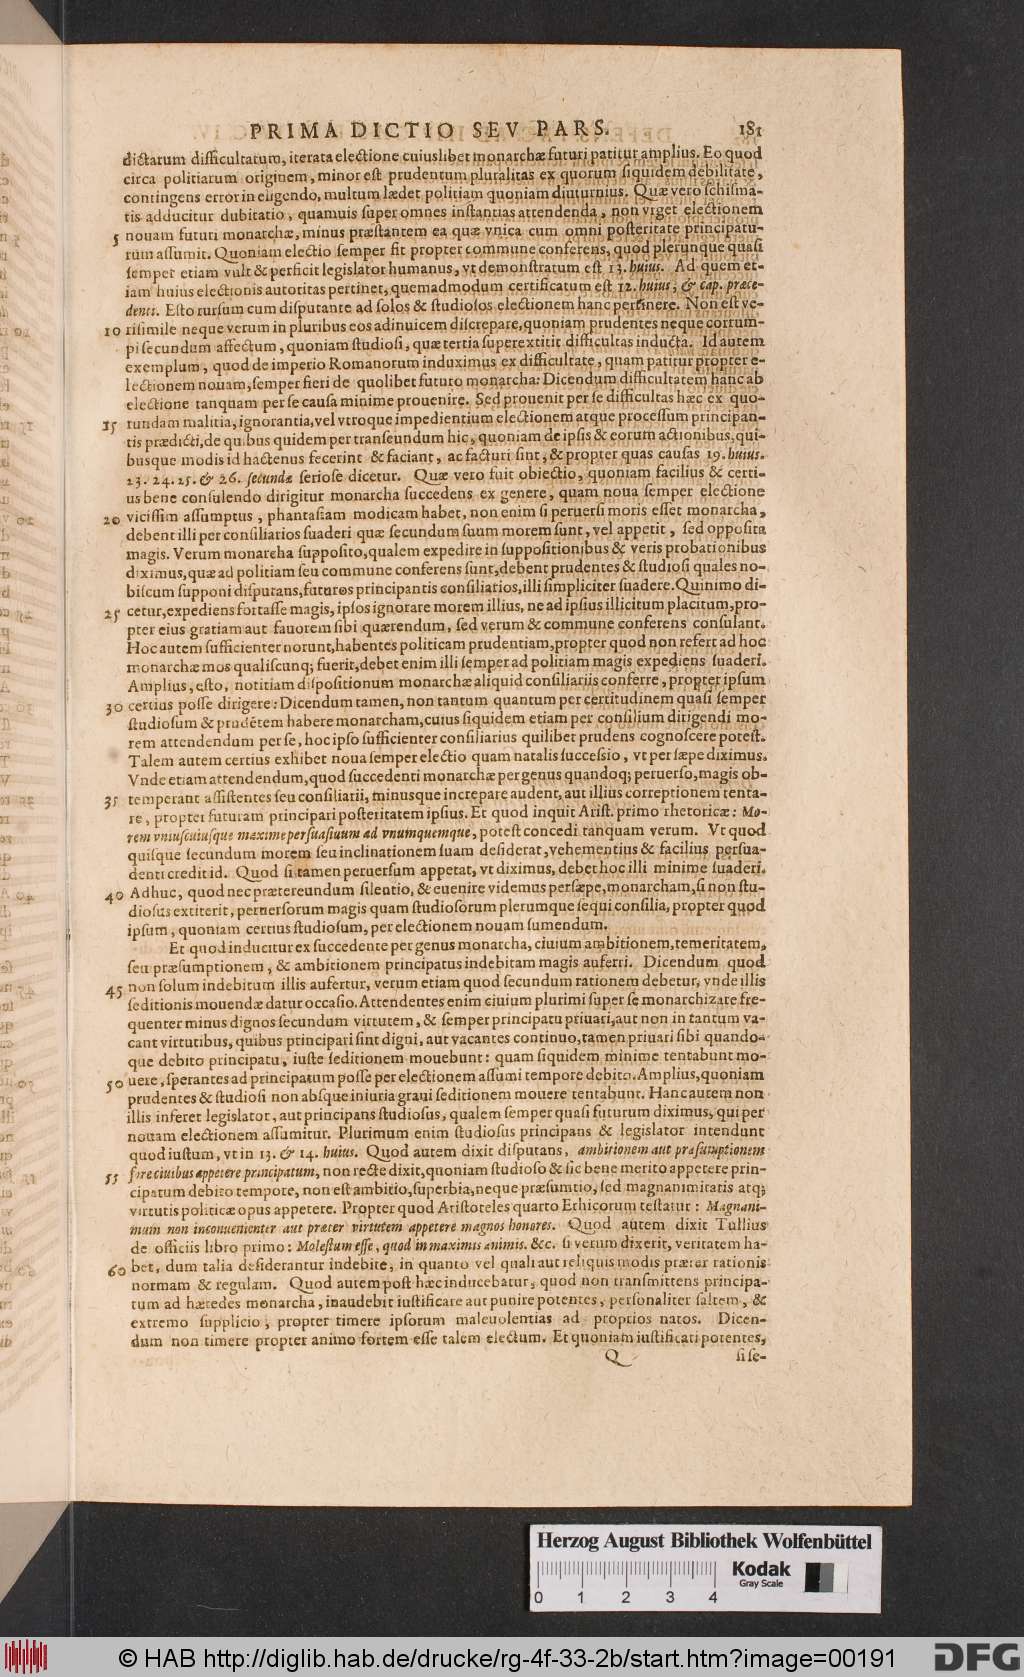 PRIMA DICTIO SEV PARS. 181
dictarum difficultatum, iterata electione cuiuslibet monarchæ futuri patitur amplius. Eo quod
circa politiarum originem, minor est prudentum pluralitas ex quorum siquidem debilitate,
contingens error in eligendo, multum lædet politiam quoniam diuturnius. Quæ vero schisma-
tis adducitur dubitatio, quamuis super omnes instantias attendenda, non vrget electionem
5 nouam futuri monarchæ, minus præstantem ea quæ vnica cum omni posteritate principatu-
rum assumit. Quoniam electio semper fit propter commune conferens, quod plerunque quasi
semper etiam vult & perficit legislator humanus, vt demonstratum est 13. huius. Ad quem et-
iam huius electionis autoritas pertinet, quemadmodum certificatum est 12. huius, & cap. præce-
denti. Esto rursum cum disputante ad solos & studiosos electionem hanc pertinere. Non est ve-
10 risimile neque verum in pluribus eos adinuicem discrepare, quoniam prudentes neque corrum-
pi secundum affectum, quoniam studiosi, quæ tertia superextitit difficultas inducta. Id autem
exemplum, quod de imperio Romanorum induximus ex difficultate, quam patitur propter e-
lectionem nouam, semper fieri de quolibet futuro monarcha: Dicendum difficultatem hanc ab
electione tanquam per se causa minime prouenire. Sed prouenit per se difficultas hæc ex quo-
15 rundam malitia, ignorantia, vel vtroque impedientium electionem atque processum principan-
tis prædicti, de quibus quidem per transeundum hic, quoniam de ipsis & eorum actionibus, qui-
busque modis id hactenus fecerint & faciant, ac facturi sint, & propter quas causas 19. huius.
23. 24. 25. & 26. secundæ seriose dicetur. Quæ vero fuit obiectio, quoniam facilius & certi-
us bene consulendo dirigitur monarcha succedens ex genere, quam noua semper electione
20 vicissim assumptus, phantasiam modicam habet, non enim si peruersi moris esset monarcha,
debent illi per consiliarios suaderi quæ secundum suum morem sunt, vel appetit, sed opposita
magis. Verum monarcha supposito, qualem expedire in suppositionibus & veris probationibus
diximus, quæ ad politiam seu commune conferens sunt, debent prudentes & studiosi quales no-
biscum supponi disputans, futuros principantis consiliarios, illi simpliciter suadere. Quinimo di-
25 cetur, expediens fortasse magis, ipsos ignorare morem illius, ne ad ipsius illicitum placitum, pro-
pter eius gratiam aut fauorem sibi quærendum, sed verum & commune conferens consulant.
Hoc autem sufficienter norunt, habentes politicam prudentiam, propter quod non refert ad hoc
monarchæ mos qualiscunq; fuerit, debet enim illi semper ad politiam magis expediens suaderi.
Amplius, esto, notitiam dispositionum monarchæ aliquid consiliariis conferre, propter ipsum
30 certius posse dirigere: Dicendum tamen, non tantum quantum per certitudinem quasi semper
studiosum & prudētem habere monarcham, cuius siquidem etiam per consilium dirigendi mo-
rem attendendum per se, hoc ipso sufficienter consiliarius quilibet prudens cognoscere potest.
Talem autem certius exhibet noua semper electio quam natalis successio, vt per sæpe diximus.
Vnde etiam attendendum, quod succedenti monarchæ per genus quandoq; peruerso, magis ob-
35 temperant assistentes seu consiliarii, minusque increpare audent, aut illius correptionem tenta-
re, propter futuram principari posteritatem ipsius. Et quod inquit Arist. primo rhetoricæ: Mo-
rem vniuscuiusque maxime persuasiuum ad vnumquemque, potest concedi tanquam verum. Vt quod
quisque secundum morem seu inclinationem suam desiderat, vehementius & facilius persua-
denti credit id. Quod si tamen peruersum appetat, vt diximus, debet hoc illi minime suaderi.
40 Adhuc, quod nec prætereundum silentio, & euenire videmus persæpe, monarcham, si non stu-
diosus extiterit, peruersorum magis quam studiosorum plerumque sequi consilia, propter quod
ipsum, quoniam certius studiosum, per electionem nouam sumendum.
Et quod inducitur ex succedente per genus monarcha, ciuium ambitionem, temeritatem,
seu præsumptionem, & ambitionem principatus indebitam magis auferri. Dicendum quod
45 non solum indebitum illis aufertur, verum etiam quod secundum rationem debetur, vnde illis
seditionis mouendæ datur occasio. Attendentes enim ciuium plurimi super se monarchizare fre-
quenter minus dignos secundum virtutem, & semper principatu priuari, aut non in tantum va-
cant virtutibus, quibus principari sint digni, aut vacantes continuo, tamen priuari sibi quando-
que debito principatu, iuste seditionem mouebunt: quam siquidem minime tentabunt mo-
50 uere, sperantes ad principatum posse per electionem assumi tempore debito. Amplius, quoniam
prudentes & studiosi non absque iniuria graui seditionem mouere tentabunt. Hanc autem non
illis inferet legislator, aut principans studiosus, qualem semper quasi futurum diximus, qui per
nouam electionem assumitur. Plurimum enim studiosus principans & legislator intendunt
quod iustum, vt in 13. & 14. huius. Quod autem dixit disputans, ambitionem aut præsumptionem
55 fore ciuibus appetere principatum, non recte dixit, quoniam studioso & sic bene merito appetere prin-
cipatum debito tempore, non est ambitio, superbia, neque præsumtio, sed magnanimitatis atq;
virtutis politicæ opus appetere. Propter quod Aristoteles quarto Ethicorum testatur: Magnani-
mum non inconuenienter aut præter virtutem appetere magnos honores. Quod autem dixit Tullius
de officiis libro primo: Molestum esse, quod in maximis animis. &c. si verum dixerit, veritatem ha-
60 bet, dum talia desiderantur indebite, in quanto vel quali aut reliquis modis præter rationis
normam & regulam. Quod autem post hæc inducebatur, quod non transmittens principa-
tum ad hæredes monarcha, inaudebit iustificare aut punire potentes, personaliter saltem, &
extremo supplicio, propter timere ipsorum maleuolentias ad proprios natos. Dicen-
dum non timere propter animo fortem esse talem electum. Et quoniam iustificati potentes,
Q si se-
Herzog August Bibliothek Wolfenbüttel
Kodak
Gray Scale
0 1 2 3 4
© HAB http://diglib.hab.de/drucke/rg-4f-33-2b/start.htm?image=00191
DFG